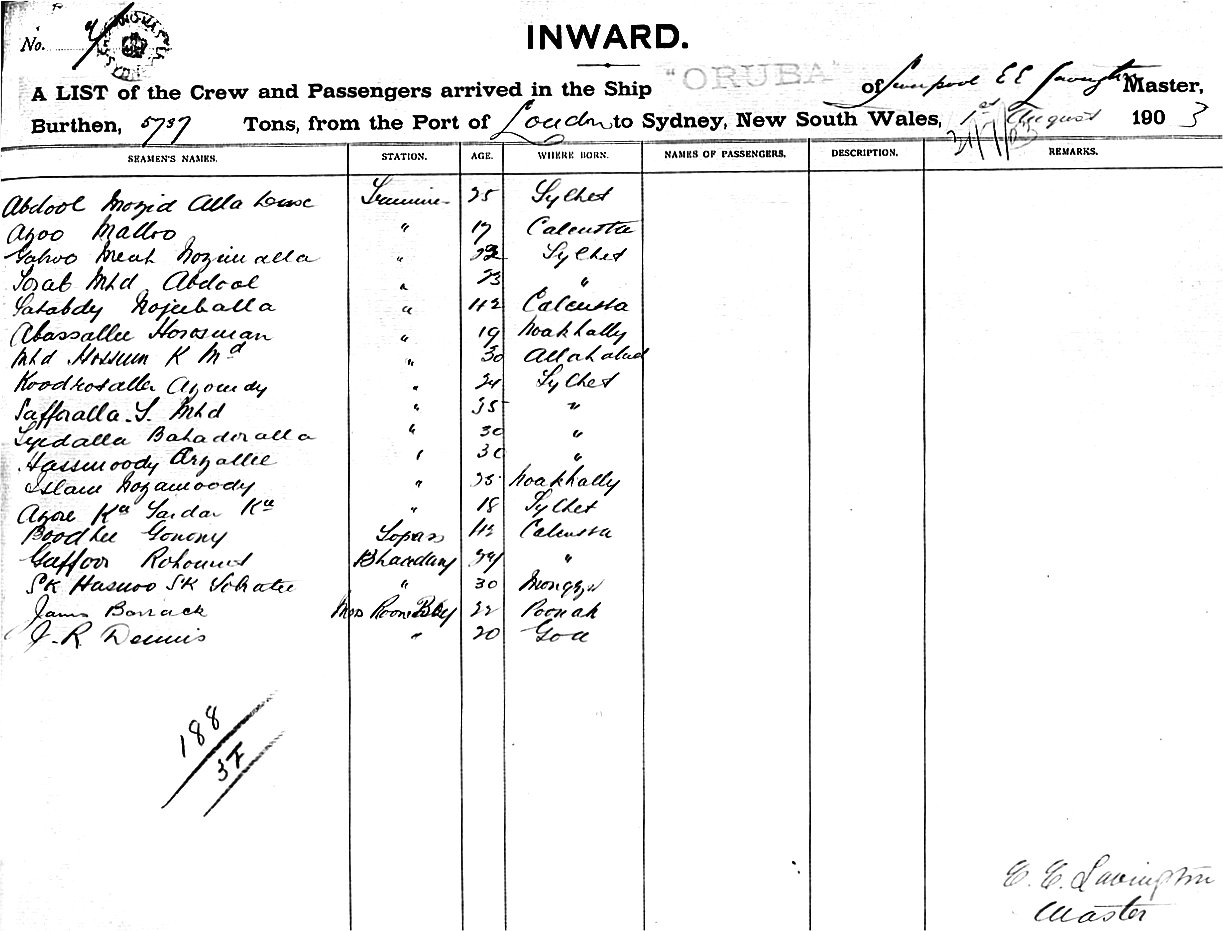 No. 4
INWARD.
A LIST of the Crew and Passengers arrived in the Ship "ORUBA" of Liverpool E E Lavington Master,
Burthen, 5737 Tons, from the Port of London to Sydney, New South Wales, 1st August 1903
31/7/03
SEAMEN'S NAMES. STATION. AGE. WHERE BORN. NAMES OF PASSENGERS. DESCRIPTION. REMARKS.
Abdool Mozid Alla 25 Sylhet
Azoo Mattro " 17 Calcutta
Meah Nozimalla " Sylhet
Torab Mhd Abdool " 23 "
Nojeballa " 42 Calcutta
Abassallee " 19 Noakhally
Mhd Hossein K Md " 30 Allahabad
Azomdy " 24 Sylhet
Safforalla S. Mhd " 35 "
Syedalla Bahadoralla " 30 "
Hassmoody Arzallee " 30 "
Islam Nozamoody " 25 Noakhally
Azore Kn Sardar Kn " 18 Sylhet
Boodhee Gonony Topas 42 Calcutta
Gaffoor Bhandary "
SK Hasnoo SK " 30 Mongyr
James Barrack Mess Room Boy 22 Poonah
J. R. Dennis " 20 Goa
188
37
E. E. Lavington
Master